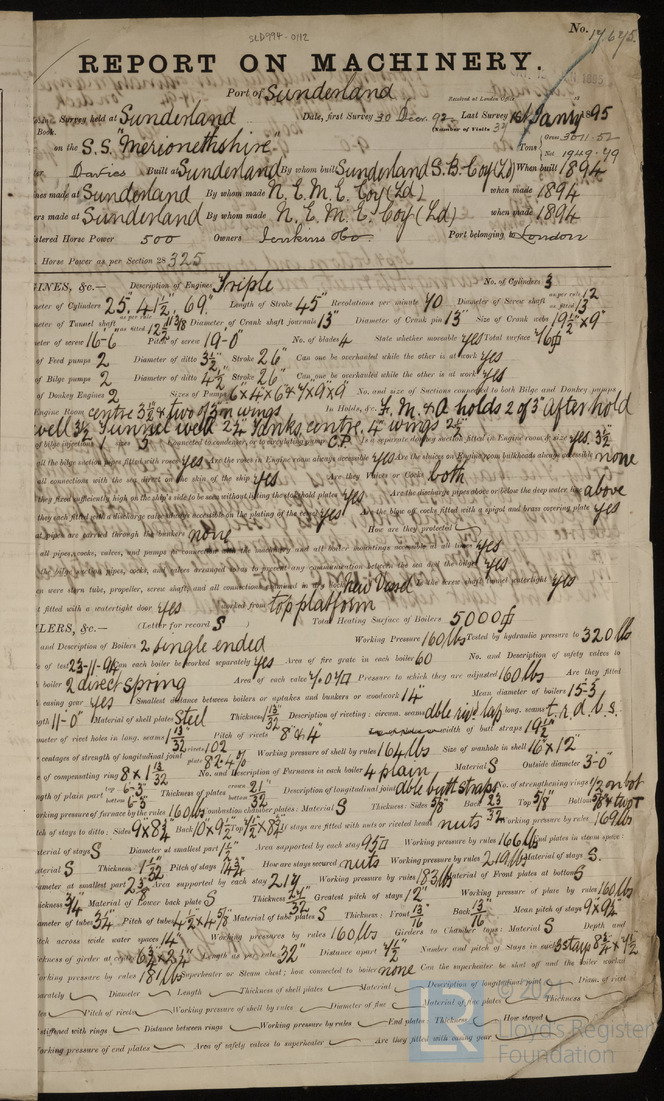 SLD994-0112
No. 17,675.
REPORT ON MACHINERY.
Port of Sunderland
Received at London Office
Survey held at Sunderland Date, first Survey 30 Last Survey 1895
Book. (Number of Visits
on the S.S. "Merionethshire" Tons Gross 3011.52
Net 1949.49
Built at Sunderland By whom built Sunderland S.B. Coy (Ld) When built 1894
made at Sunderland By whom made N.E.M.E. Coy (Ld) when made 1894
made at Sunderland By whom made N.E.M.E. Coy (Ld) when made 1894
Horse Power 500 Owners Jenkins & Co. Port belonging to London
Horse Power as per Section 28 325
INES, &c.— Description of Engines Triple No. of Cylinders 3
meter of Cylinders 25, 41½", 69" Length of Stroke 45" Revolutions per minute 70 Diameter of Screw shaft as per rule 12 as fitted 13"
meter of Tunnel shaft Diameter of Crank shaft journals 13" Diameter of Crank pin 13" Size of Crank webs 19½" x 9"
meter of screw 16-6" Pitch of screw 19-0" No. of blades 4 State whether moveable yes Total surface 76
of Feed pumps 2 Diameter of ditto 3½" Stroke 26" Can one be overhauled while the other is at work yes
of Bilge pumps 2 Diameter of ditto 4½" Stroke 26" Can one be overhauled while the other is at work yes
of Donkey Engines 2 Sizes of Pumps 6 x 4 x 6 & 7 x 9 x 9" No. and size of Suctions connected to both Bilge and Donkey pumps
Engine Room centre 3½ & two of 3" in wings In Holds, &c. F. M. & A holds 2 of 3" After hold
well 3½ Tunnel well 2¼ Tanks, centre, 4" wings 2½"
of bilge injections 1 sizes Connected to condenser, or to circulating pump C.P. Is a separate donkey suction fitted in Engine room & size yes 3½
all the bilge suction pipes fitted with roses yes Are the roses in Engine room always accessible yes Are the sluices on Engine room bulkheads always accessible none
all connections with the sea direct on the skin of the ship yes Are they Valves or Cocks both
they fixed sufficiently high on the ship's side to be seen without lifting the stokehold plates yes Are the discharge pipes above or below the deep water line above
they each fitted with a discharge valve always accessible on the plating of the vessel yes Are the blow off cocks fitted with a spigot and brass covering plate yes
pipes are carried through the bunkers none How are they protected
all pipes, cocks, valves, and pumps in connection with the machinery and all boiler mountings accessible at all times yes
the bilge suction pipes, cocks, and valves arranged so as to prevent any communication between the sea and the bilges yes
were stern tube, propeller, screw shaft, and all connections examined in dry dock new Vessel Is the screw shaft tunnel watertight yes
fitted with a watertight door yes worked from top platform
ILERS, &c.— (Letter for record S) Total Heating Surface of Boilers 5000
and Description of Boilers 2 Single ended Working Pressure 160 lbs Tested by hydraulic pressure to 320 lbs
of test 23-11-94 Can each boiler be worked separately yes Area of fire grate in each boiler 60 No. and Description of safety valves to
boiler 2 direct spring Area of each valve 7.07 Pressure to which they are adjusted 160 lbs Are they fitted
easing gear yes Smallest distance between boilers or uptakes and bunkers or woodwork 14" Mean diameter of boilers 15-3
11-0" Material of shell plates Steel Thickness 1 13/32 Description of riveting: circum. seams dble rivd lap long. seams t.r.d.b.s.
meter of rivet holes in long. seams 1 13/32 Pitch of rivets 8" & 4" width of butt straps 19½"
centages of strength of longitudinal joint rivets 102 plate 82.4% Working pressure of shell by rules 164 lbs Size of manhole in shell 16" x 12"
of compensating ring 8 x 1 13/32 No. and Description of Furnaces in each boiler 4 plain Material S Outside diameter 3-0"
of plain part top 6-3 bottom 6-3 Thickness of plates crown 21/32 bottom Description of longitudinal joint dble butt straps No. of strengthening rings
working pressure of furnace by the rules 160 lbs Combustion chamber plates: Material S Thickness: Sides 5/8" Back 23/32 Top 5/8" Bottom
of stays to ditto: Sides 9 x 8¾ Back 10 x 9½ Top If stays are fitted with nuts or riveted heads nuts Working pressure by rules 169 lbs
aterial of stays S Diameter at smallest part Area supported by each stay 95 Working pressure by rules 166 lbs End plates in steam space:
aterial S Thickness Pitch of stays How are stays secured nuts Working pressure by rules 210 lbs Material of stays S.
ameter at smallest part Area supported by each stay 217 Working pressure by rules 183 lbs Material of Front plates at bottom S
ickness ¾ Material of Lower back plate S Thickness 27/32 Greatest pitch of stays 12" Working pressure of plate by rules 160 lbs
ameter of tubes 3¼" Pitch of tubes 4½ x 4⅝ Material of tube plates S Thickness: Front 13/16 Back 13/16 Mean pitch of stays 9" x 9¼"
itch across wide water spaces 14" Working pressures by rules 160 lbs Girders to Chamber tops: Material S Depth and
ickness of girder at centre Length as per rule 32" Distance apart Number and pitch of Stays in each 3 stays
orking pressure by rules 181 lbs Superheater or Steam chest; how connected to boiler none Can the superheater be shut off and the boiler worked
arately Diameter Length Thickness of shell plates Material Description of longitudinal joint Diam. of rivet
les Pitch of rivets Working pressure of shell by rules Diameter of flue Material of flue plates Thickness
stiffened with rings Distance between rings Working pressure by rules End plates: Thickness How stayed
orking pressure of end plates Area of safety valves to superheater Are they fitted with easing gear
© 2021
Lloyd's Register
Foundation